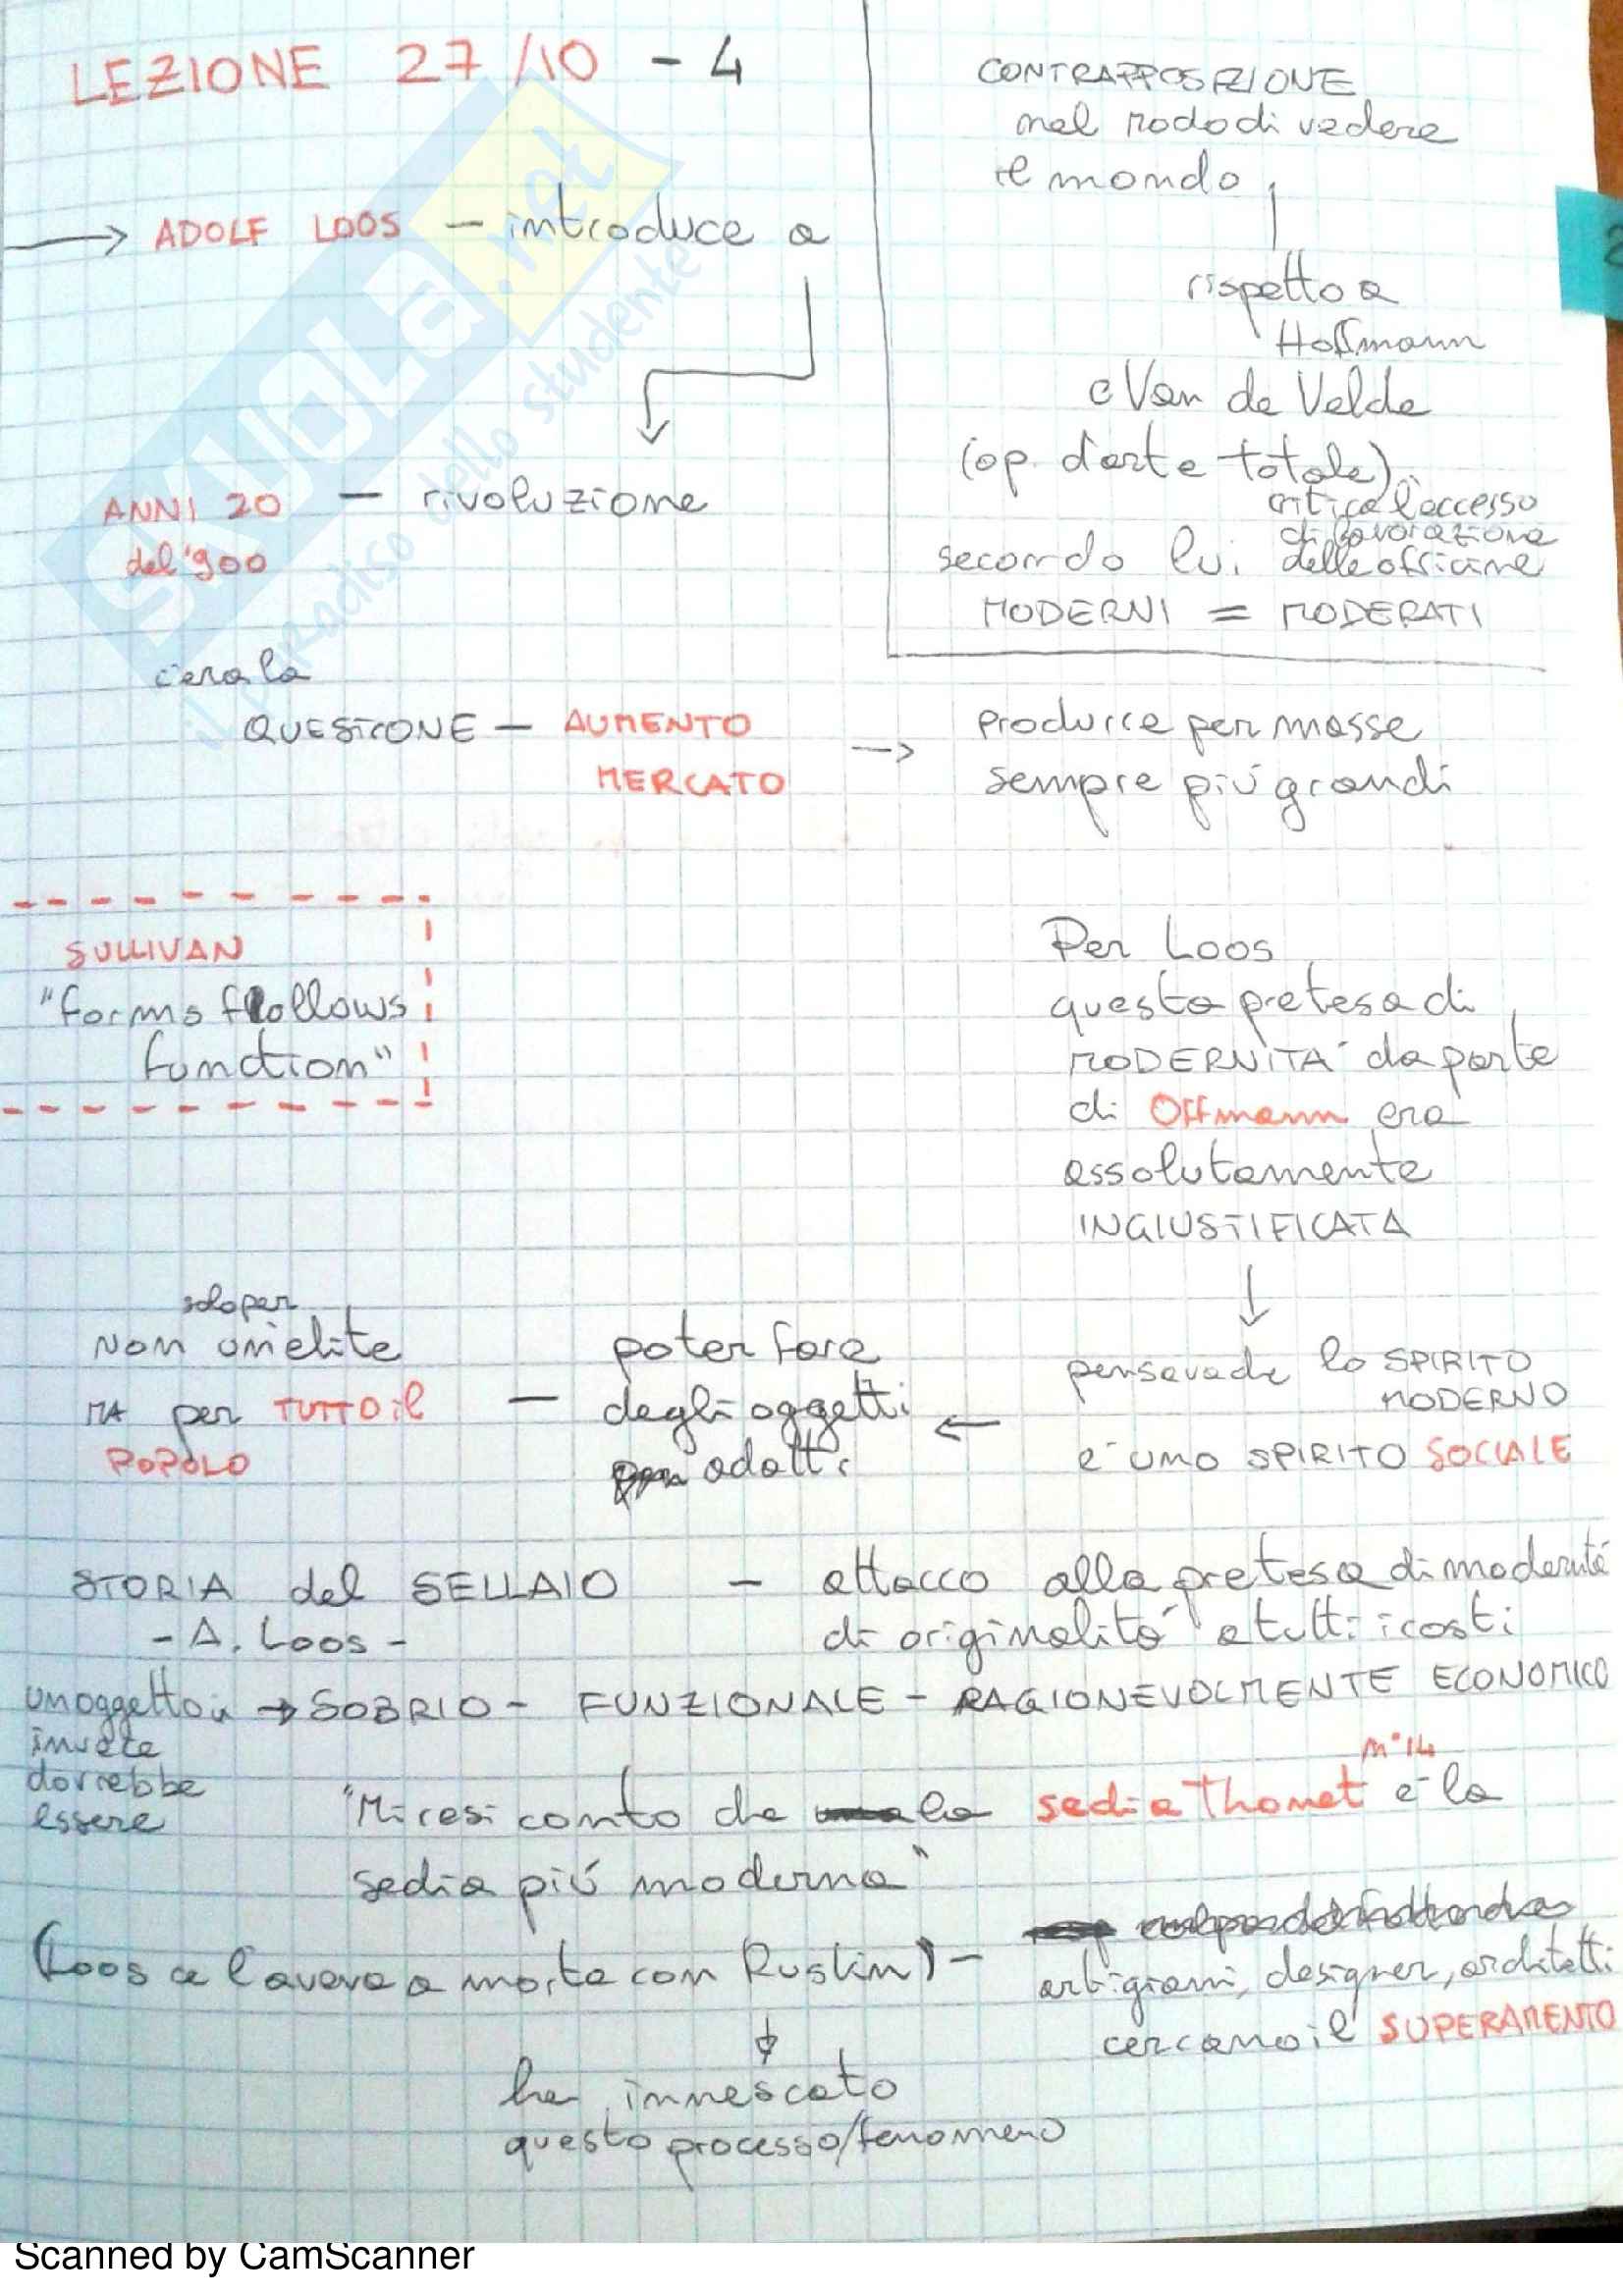 LEZIONE 27/10 - 4
→ ADOLF LOOS — introduce a
ANNI 20 — rivoluzione
del '900
CONTRAPPOSIZIONE
nel modo di vedere
il mondo
rispetto a
Hoffmann
e Van de Velde
(op. d'arte totale)
critica l'eccesso
di lavorazione
secondo lui delle officine
MODERNI = MODERATI
c'era la
QUESTIONE — AUMENTO
MERCATO
→ produrre per masse
sempre più grandi
SULLIVAN
"forms follows
function"
Per Loos
questa pretesa di
MODERNITA' da parte
di Offmann era
assolutamente
INGIUSTIFICATA
pensava che lo SPIRITO
MODERNO
è uno SPIRITO SOCIALE
← poter fare
degli oggetti
adatti
— solo per
Non un'elite
MA per TUTTO il
POPOLO
STORIA del SELLAIO — attacco alla pretesa di modernità
- A. Loos - di originalità a tutti i costi
un oggetto → SOBRIO - FUNZIONALE - RAGIONEVOLMENTE ECONOMICO
invece
dovrebbe
essere
n°14
"Mi resi conto che la sedia Thonet è la
sedia più moderna"
(Loos ce l'aveva a morte con Ruskin) - artigiani, designer, architetti
cercano il SUPERAMENTO
ha innescato
questo processo/fenomeno
SKUOLA.net
il paradiso dello studente
Scanned by CamScanner